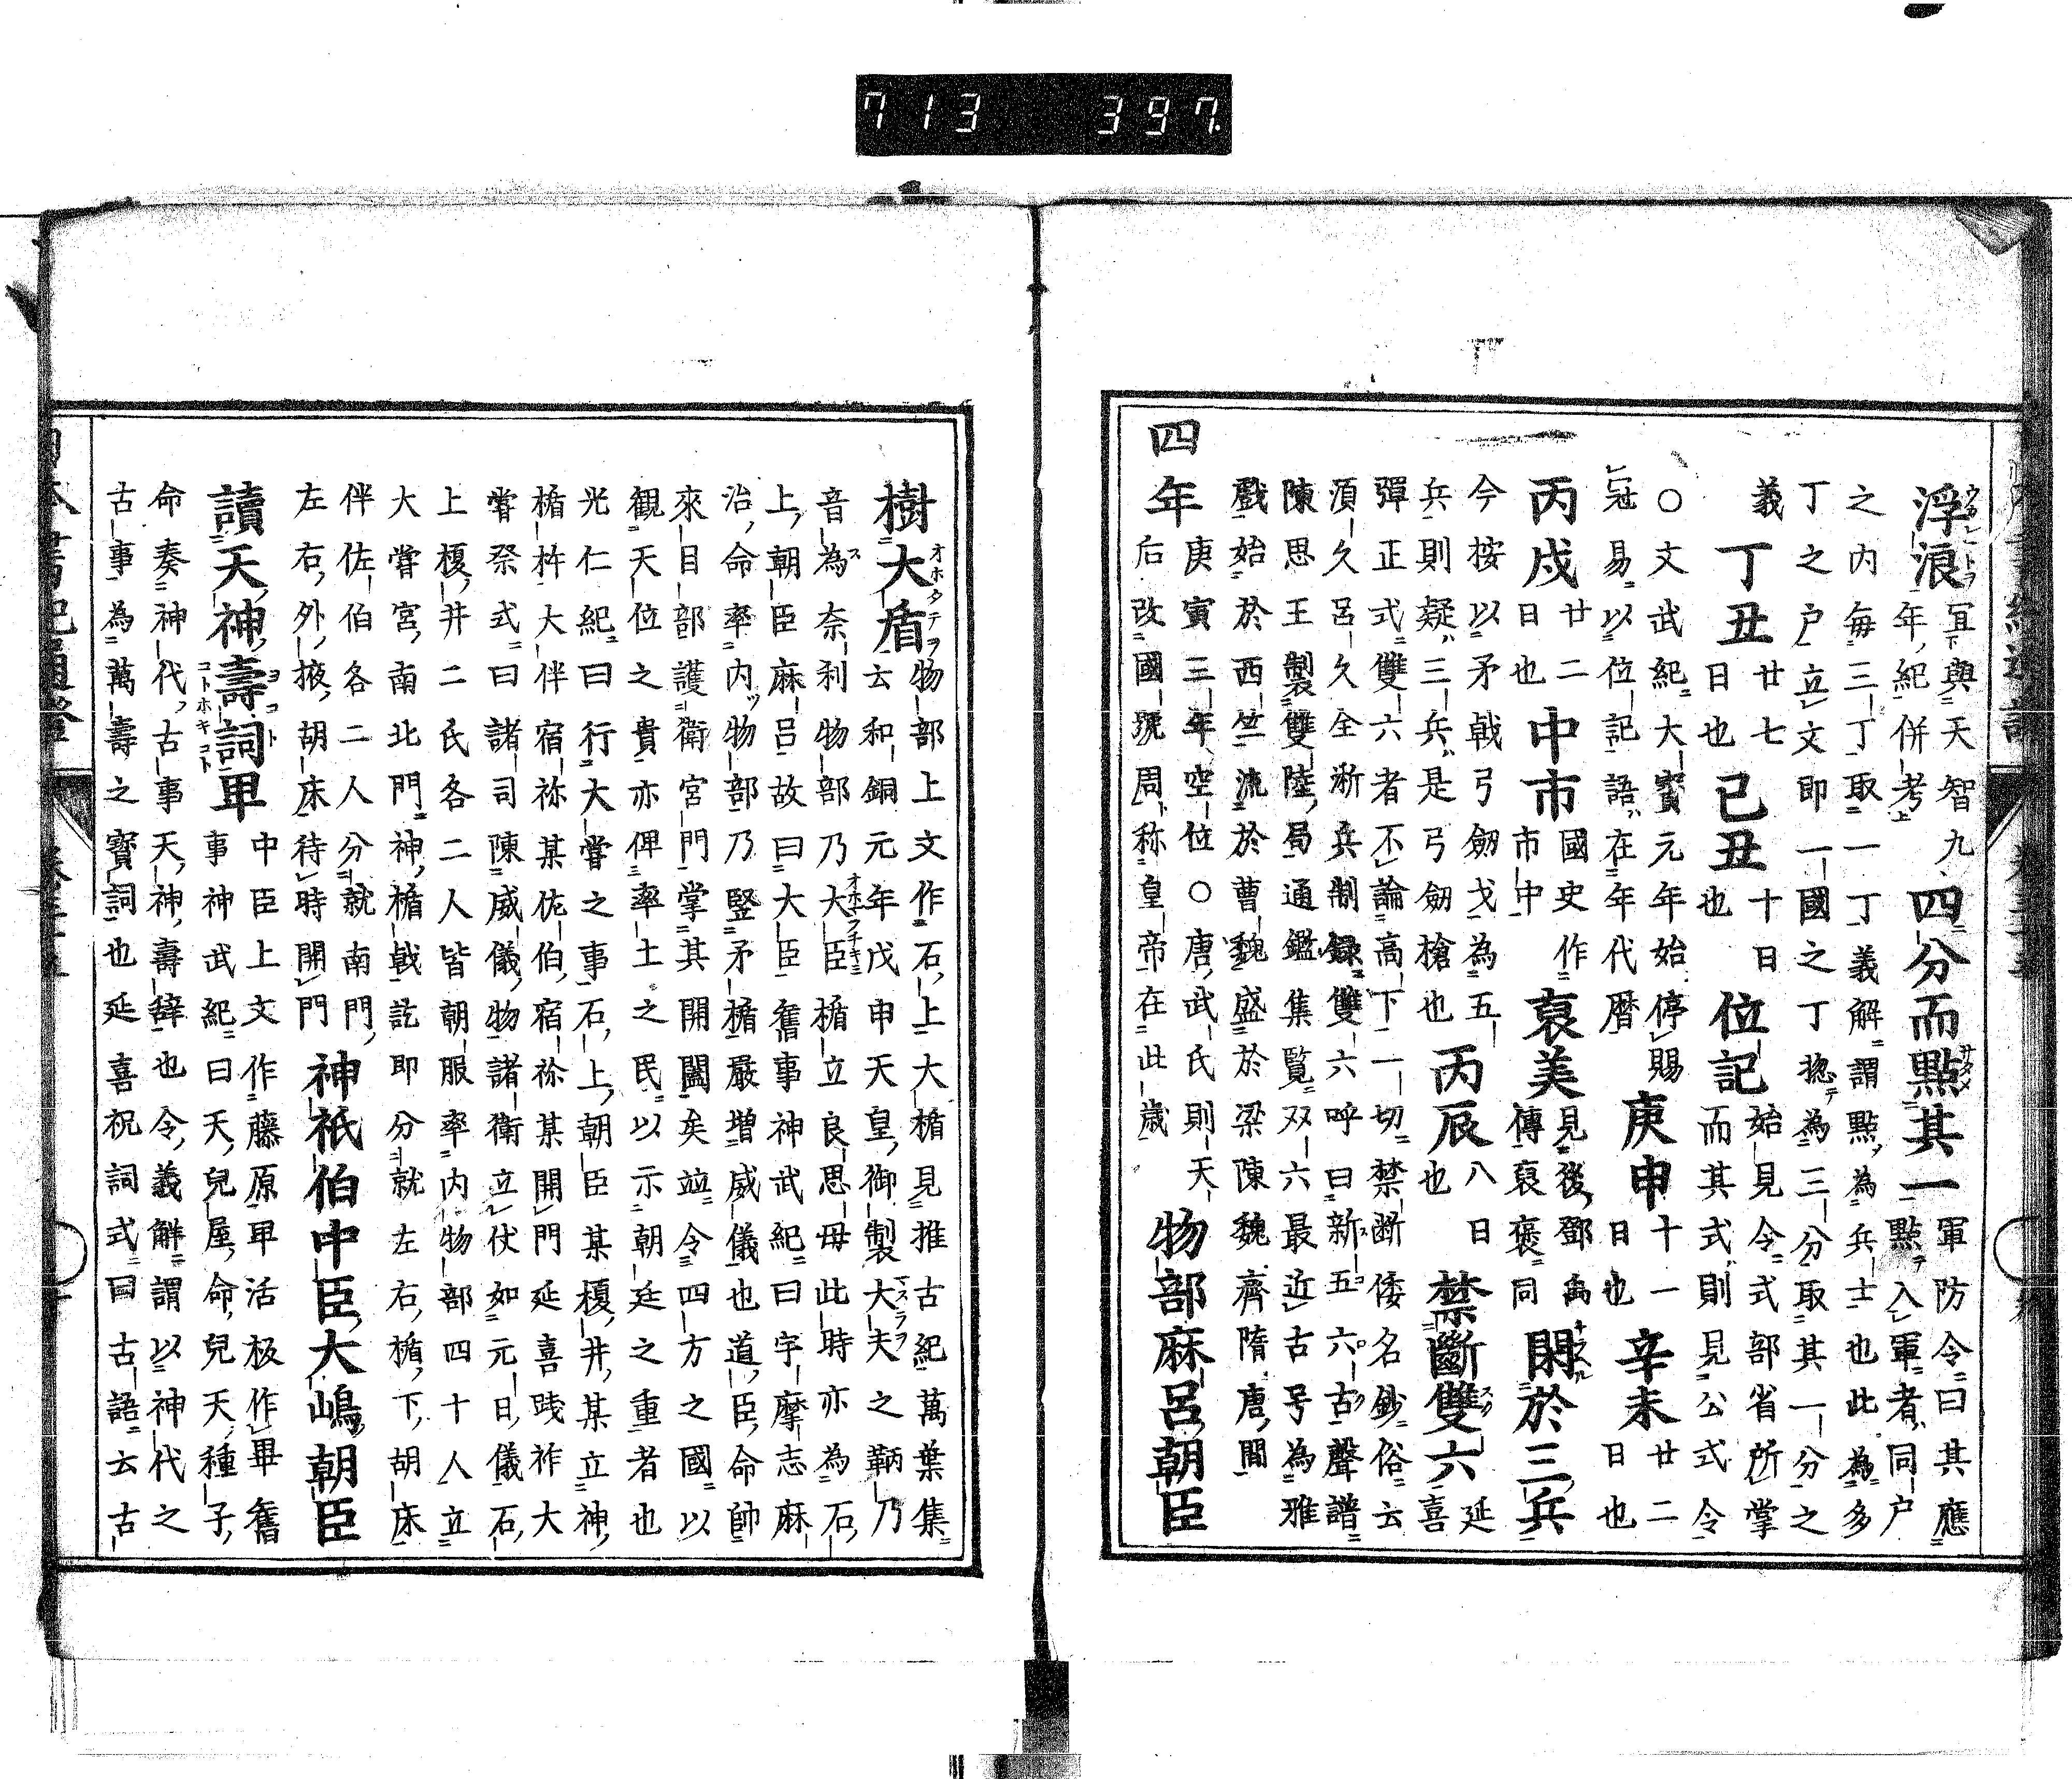 713 397
浮浪宜與天智九年紀併考四分而點其一軍防令曰其應點入軍者同户
之内毎三丁取一丁義解謂點為兵士也此為多
丁之户立文即一國之丁惣為三分取其一分之
義丁丑廿七日也己丑十日也位記始見令式部省所掌而其式則見公式令
○文武紀大寳元年始停賜
冠易以位記語在年代暦庚申十一日也辛未廿二日也
丙戌廿二日也中市國史作市中裒美見後鄧禹傳裒褒同閑於三兵
今按以矛戟弓劔戈為五
兵則疑三兵是弓劔槍也丙辰八日也禁斷雙六延喜
彈正式雙六者不論高下一切禁断倭名鈔俗云
須久呂久全淅兵制録雙六呼曰新五六古聲譜
陳思王製雙陸局通鑑集覧双六最近古号為雅
戲始於西竺流於曹魏盛於梁陳魏齊隋唐間
四年庚寅三年空位○唐武氏則天
后改國號周称皇帝在此歳物部麻呂朝臣
樹大盾物部上文作石上大楯見推古紀萬葉集
云和銅元年戊申天皇御製大夫之鞆乃
音為奈利物部乃大臣楯立良思母此時亦為石
上朝臣麻呂故曰大臣舊事神武紀曰宇摩志麻
治命率内物部乃竪矛楯嚴増威儀也道臣命帥
來目部護衛宮門掌其開闔矣竝令四方之國以
観天位之貴亦俾率土之民以示朝廷之重者也
光仁紀曰行大嘗之事石上朝臣某榎井某立神
楯杵大伴宿祢某佐伯宿祢某開門延喜践祚大
嘗祭式曰諸司陳威儀物諸衛立伏如元日儀石
上榎井二氏各二人皆朝服率内物部四十人立
大嘗宮南北門神楯戟訖即分就左右楯下胡床
伴佐伯各二人分就南門
左右外掖胡床待時開門神祇伯中臣大嶋朝臣
讀天神壽詞畢中臣上文作藤原畢活板作畢舊事神武紀曰天兒屋命兒天種子
命奏神代古事天神壽辞也令義解謂以神代之
古事為萬壽之寳詞也延喜祝詞式曰古語云古